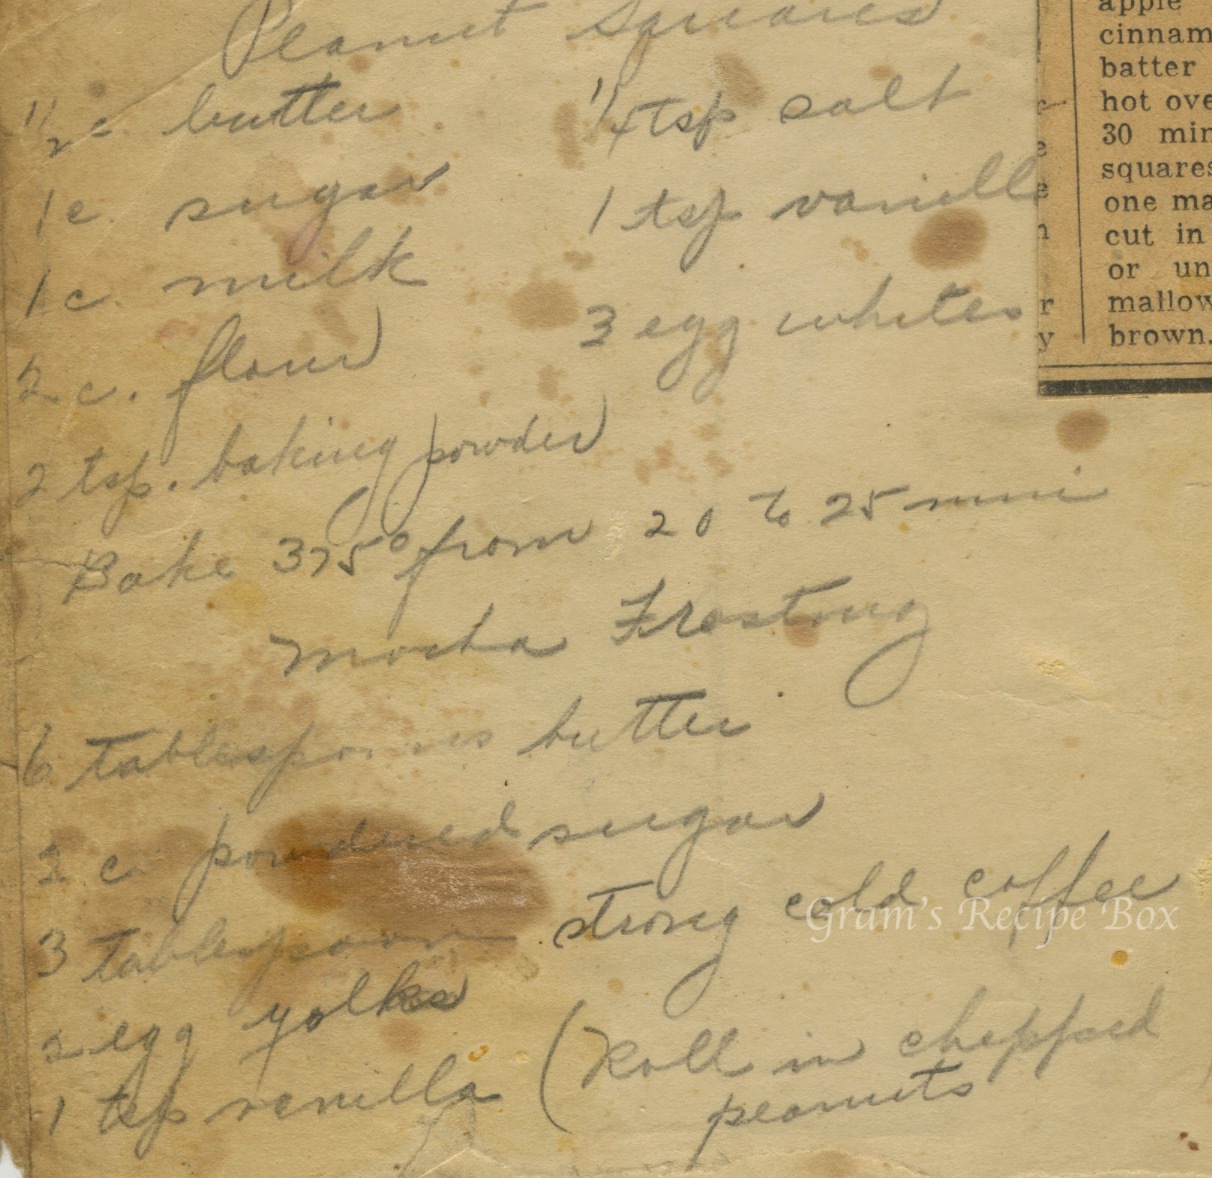 Peanut Squares
1/2 c. butter
1 c. sugar
1 c. milk
2 c. flour
2 tsp. baking powder
1/4 tsp salt
1 tsp vanilla
3 egg whites
Bake 375° from 20 to 25 min
Mocha Frosting
6 tablespoons butter
2 c. powdered sugar
3 tablespoon strong cold coffee
2 egg yolks
1 tsp vanilla (Roll in chopped
peanuts
apple
cinnam
batter
hot ove
30 min
squares
one ma
cut in
or un
mallow
brown.
Gram's Recipe Box